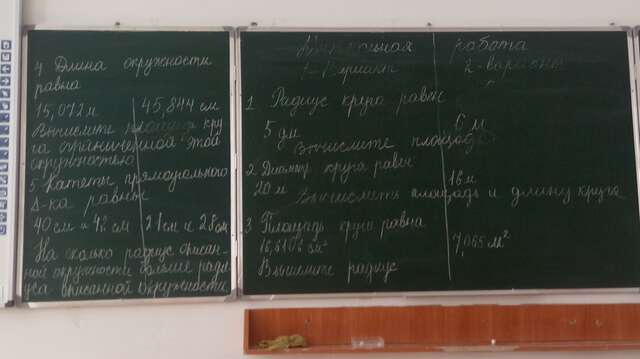 Контрольная работа
1-Вариант 2-вариант
1. Радиус круга равен
5 дм 6 м
Вычислите площадь
2. Диаметр круга равен
20 м 16 м
Вычислить площадь и длину круга
3. Площадь круга равна
7,065 м²
Вычислите радиус
4. Длина окружности
равна
15,072 м 45,844 см
Вычислите площадь кру
га ограниченной этой
окружностью
5. Катеты прямоугольного
Δ-ка равны
40 см и 42 см 21 см и 28 см
На сколько радиус описан-
ной окружности больше ради
уса вписанной окружности